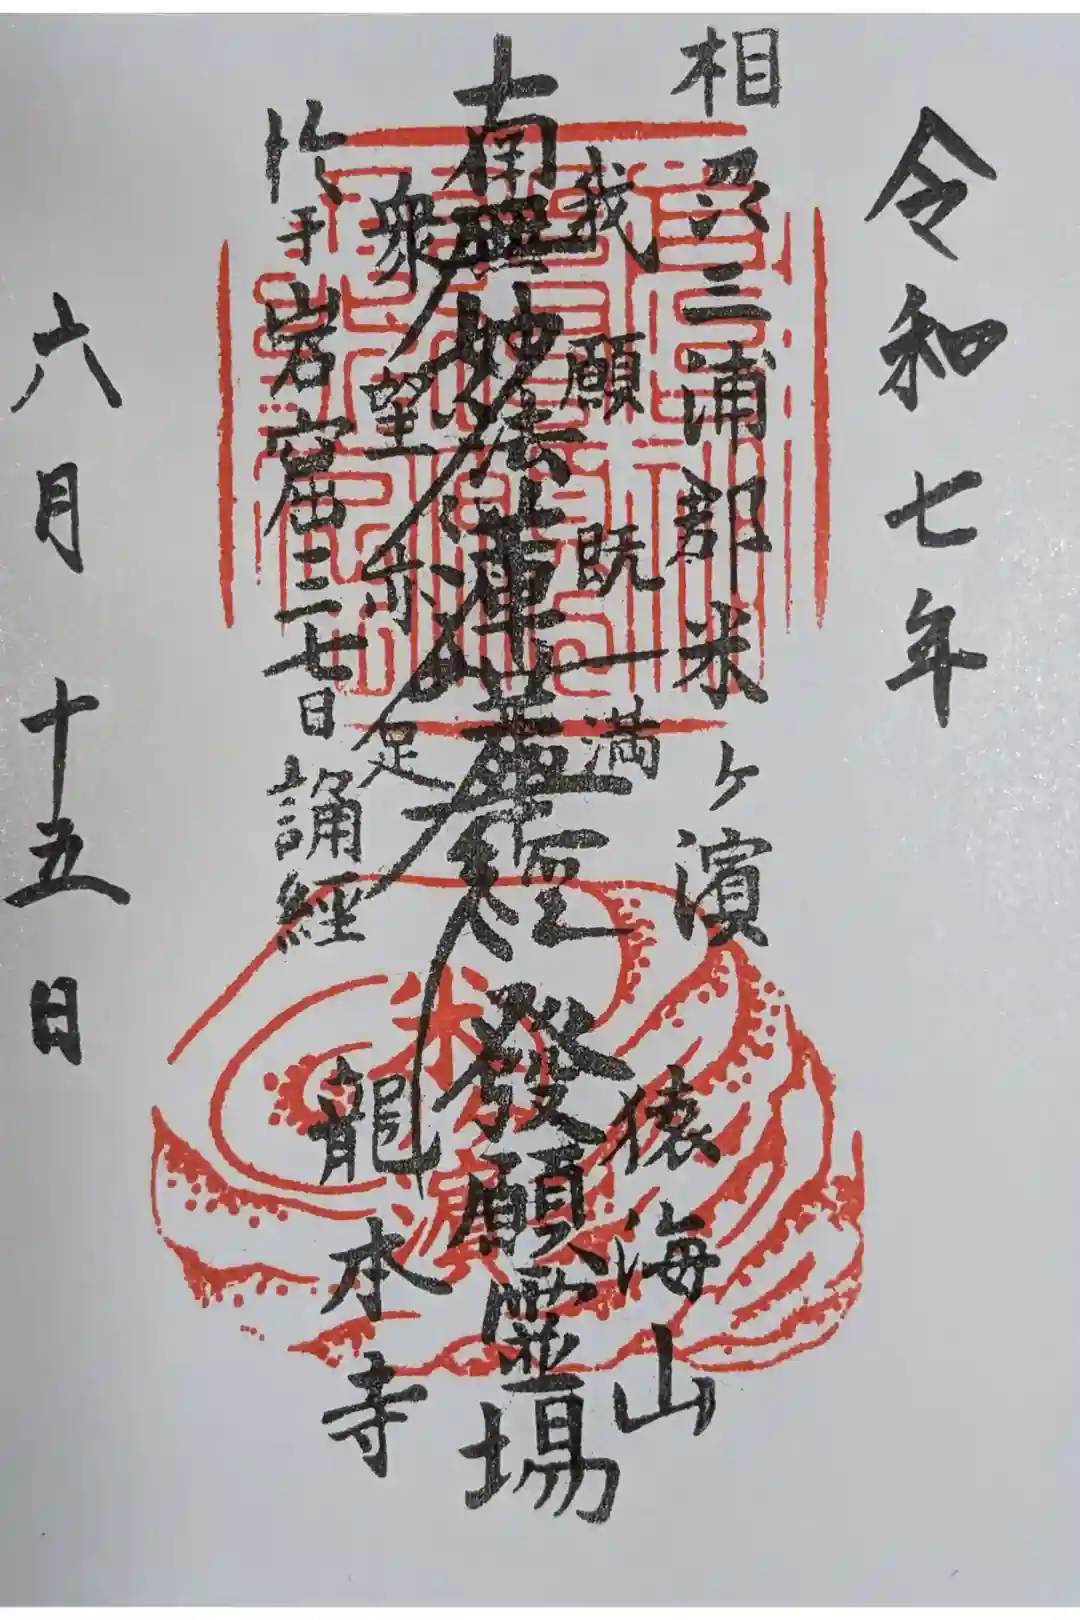 令和七年
相州三浦郡米ヶ濱
猿海山
我願既満
南無妙法蓮華經
發願霊場
衆望亦足
於于岩窟三七日誦經
龍本寺
六月十五日
米濱